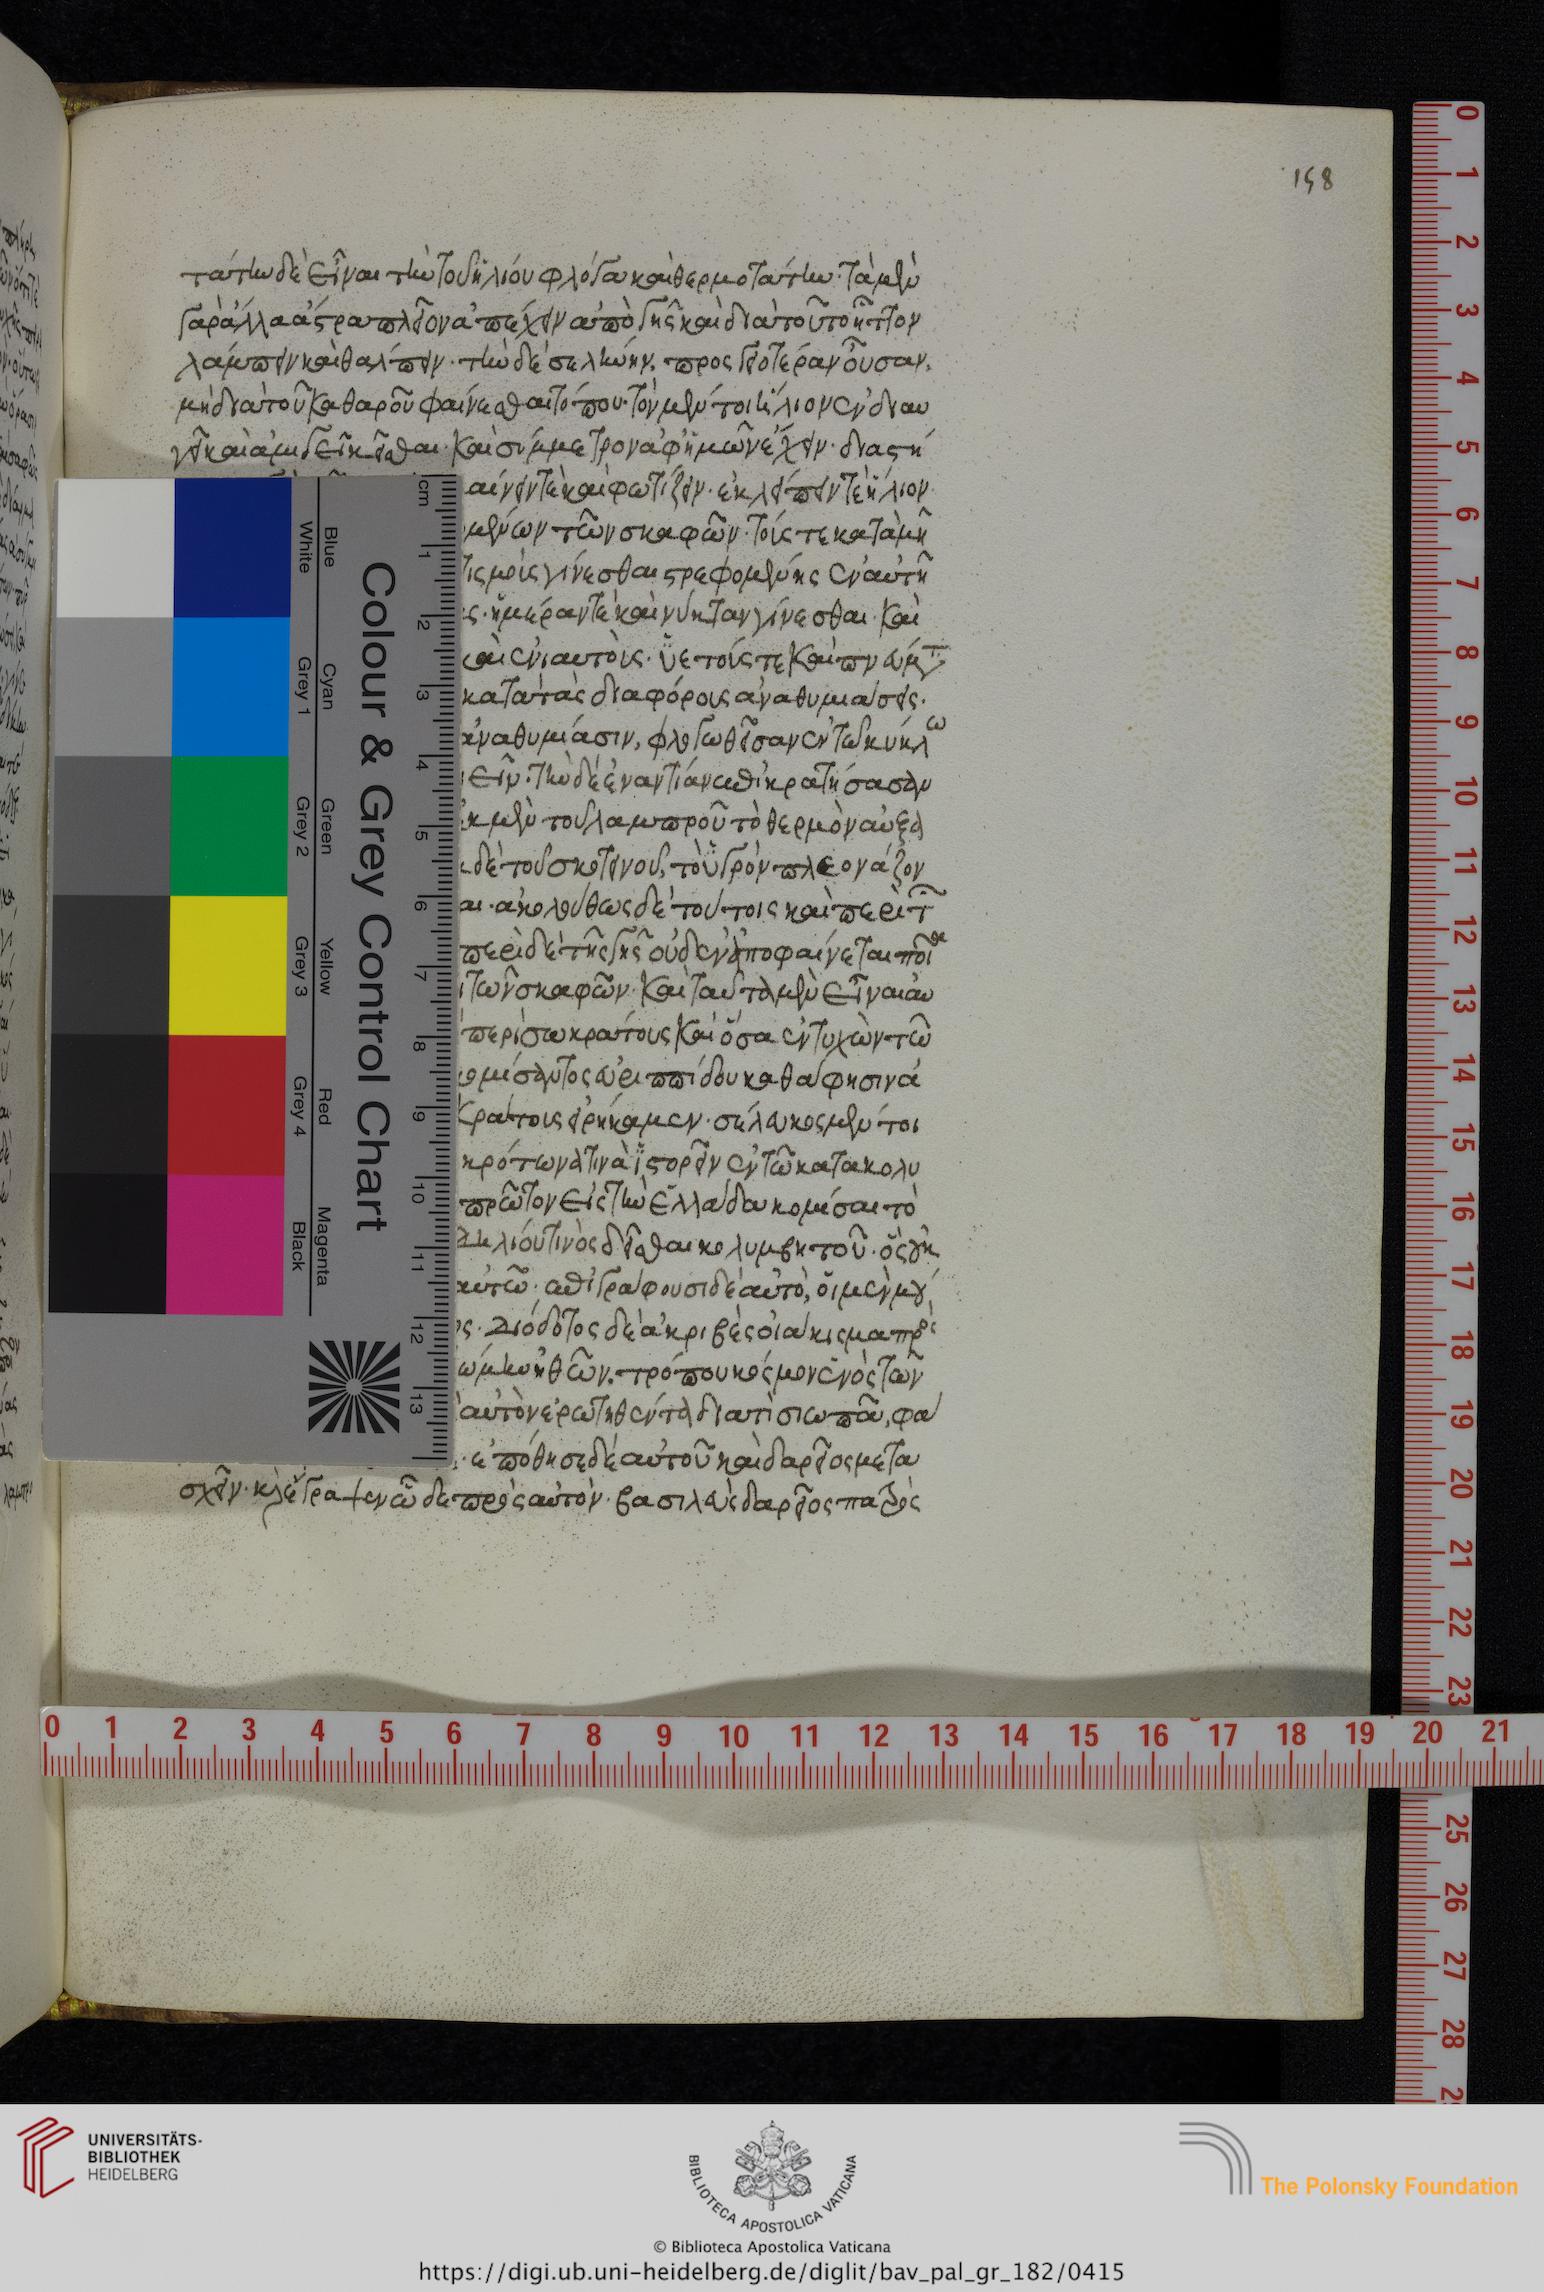 158
τάτην δὲ εἶναι τὴν τοῦ ἡλίου φλόγα καὶ θερμοτάτην· τὰ μὲν
γὰρ ἄλλα ἄστρα πλεῖον ἀπέχειν ἀπὸ γῆς καὶ διὰ τοῦτο ἧττον
λάμπειν καὶ θάλπειν· τὴν δὲ σελήνην, προσγειοτέραν οὖσαν,
μὴ διὰ τοῦ καθαροῦ φαίνεσθαι τόπου· τὸν μέντοι ἥλιον ἐν διαυ
γεῖ καὶ ἀμιγεῖ κεῖσθαι· καὶ σύμμετρον ἀφ' ἡμῶν ἔχειν· διάστη
αίνειν τὲ καὶ φωτίζειν· ἐκλείπειν τὲ ἥλιον
μένων τῶν σκαφῶν· τούς τε κατὰ μῆ
γίνεσθαι στρεφομένης ἐν αὐτῆ
ς· ἡμέραν τὲ καὶ νύκταν γίνεσθαι· καὶ
καὶ ἐνιαυτοὺς· ὑετούς τε καὶ πνεύμτ
κατὰ τὰς διαφόρους ἀναθυμιάσεις·
ἀναθυμίασιν, φλογωθεῖσαν ἐν τῶ κύκλω
τὴν δὲ ἐναντίαν ἐπικρατήσασαν
ἐκ μὲν τοῦ λαμπροῦ τὸ θερμὸν αὐξα
δὲ τοῦ σκοτεινοῦ, τὸ ὑγρὸν πλεονάζον
αι· ἀκολούθως δὲ τούτοις καὶ περὶ τ
περὶ δὲ τῆς γῆς οὐδὲν ἀποφαίνεται ποί
τῶν σκαφῶν· καὶ ταῦτα μὲν εἶναι αυ
περὶ σωκράτους καὶ ὅσα ἐντυχὼν τῶ
κομίσαντος εὐριπίδου καθά φησιν ἀ
κράτους εἰρήκαμεν· σέλευκος μέντοι
κρότωνά τινα ἱστορεῖν ἐν τῶ κατακολυ
πρῶτον εἰς τὴν ἑλλάδα κομίσαι τὸ
δηλίου τινὸς δεῖσθαι κολυμβητοῦ· ὃς οὐκ
αὐτῶ· ἐπιγράφουσι δὲ αὐτὸ, οἱ μὲν μού
ς· διόδοτος δὲ ἀκριβὲς οἰάκισμα πρὸς
ἠθῶν. τρόπου κόσμον ἑνὸς τῶν
αὐτὸν ἐρωτηθέντα διατὶ σιωπᾶ, φά
· ἐπόθησε δὲ αὐτοῦ καὶ δαρεῖος μετα
σχεῖν· καὶ ἔγραψεν ὧδε πρὸς αὐτόν· βασιλεὺς δαρεῖος πατρὸς
Colour & Grey Control Chart
Blue
Cyan
Green
Yellow
Red
Magenta
White
Grey 1
Grey 2
Grey 3
Grey 4
Black
cm
1
2
3
4
5
6
7
8
9
10
11
12
13
0 1 2 3 4 5 6 7 8 9 10 11 12 13 14 15 16 17 18 19 20 21
0
1
2
3
4
5
6
7
8
9
10
11
12
13
14
15
16
17
18
19
20
21
22
23
25
26
27
28
UNIVERSITÄTS-
BIBLIOTHEK
HEIDELBERG
BIBLIOTECA APOSTOLICA VATICANA
The Polonsky Foundation
© Biblioteca Apostolica Vaticana
https://digi.ub.uni-heidelberg.de/diglit/bav_pal_gr_182/0415